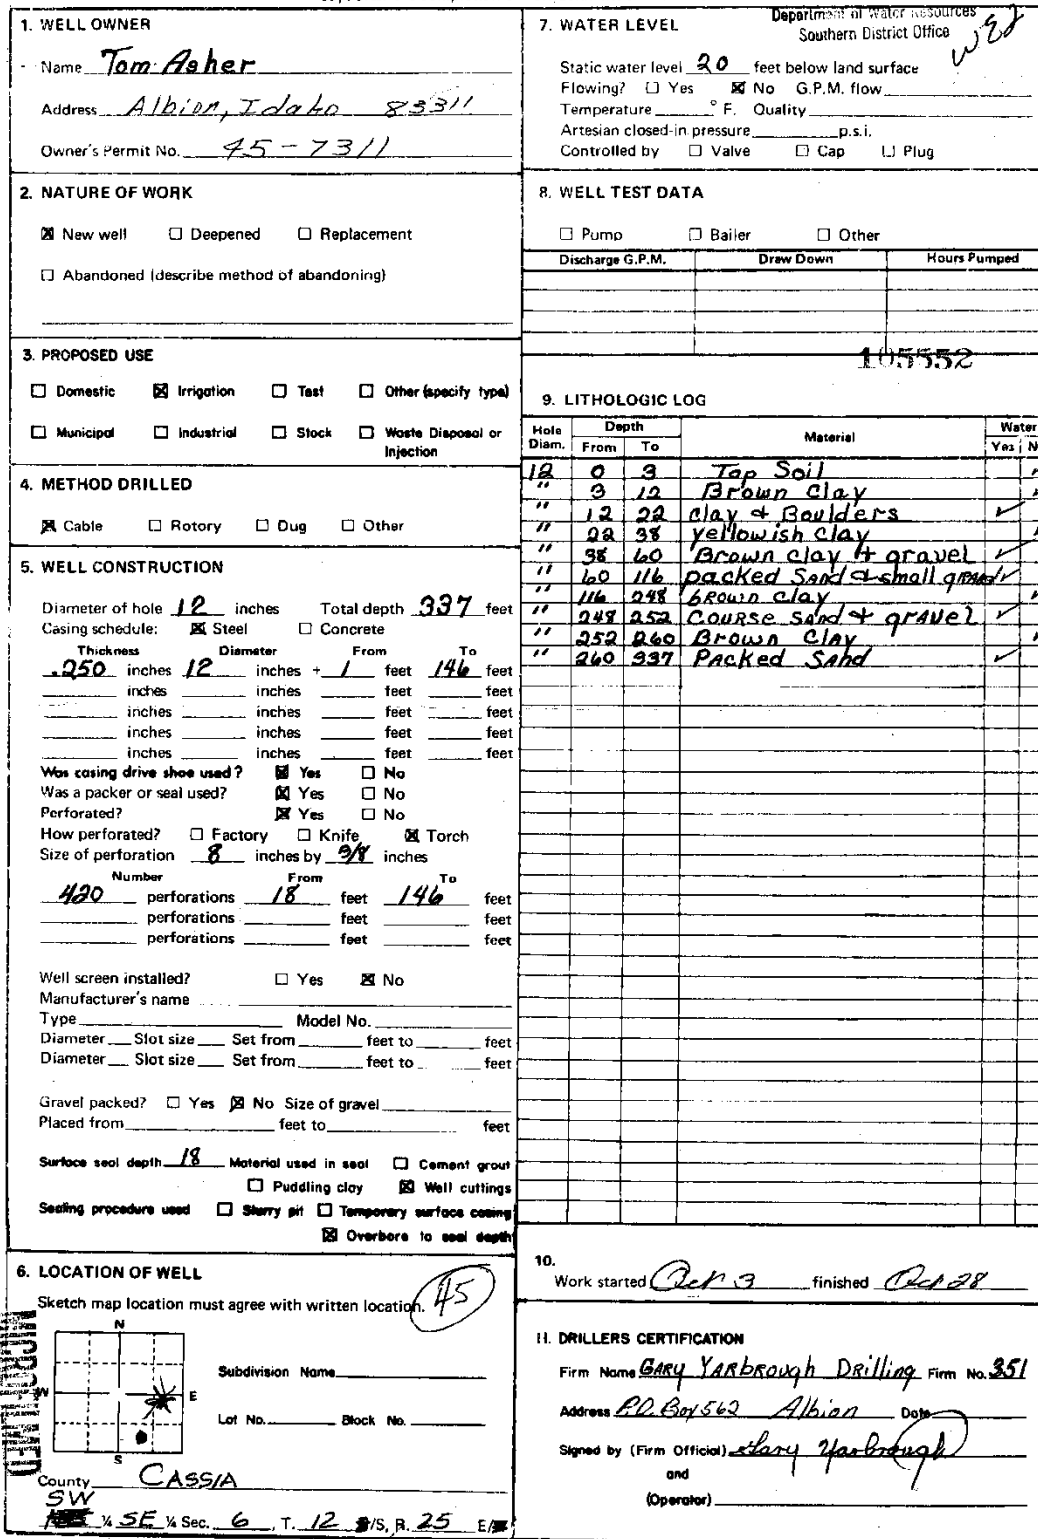 1. WELL OWNER
Name Tom Asher
Address Albion, Idaho 83311
Owner's Permit No. 45-7311
2. NATURE OF WORK
☒ New well ☐ Deepened ☐ Replacement
☐ Abandoned (describe method of abandoning)
3. PROPOSED USE
☐ Domestic ☒ Irrigation ☐ Test ☐ Other (specify type)
☐ Municipal ☐ Industrial ☐ Stock ☐ Waste Disposal or
Injection
4. METHOD DRILLED
☒ Cable ☐ Rotory ☐ Dug ☐ Other
5. WELL CONSTRUCTION
Diameter of hole 12 inches Total depth 337 feet
Casing schedule: ☒ Steel ☐ Concrete
Thickness Diameter From To
.250 inches 12 inches + 1 feet 146 feet
inches inches feet feet
inches inches feet feet
inches inches feet feet
inches inches feet feet
Was casing drive shoe used? ☒ Yes ☐ No
Was a packer or seal used? ☒ Yes ☐ No
Perforated? ☒ Yes ☐ No
How perforated? ☐ Factory ☐ Knife ☒ Torch
Size of perforation 8 inches by 3/8 inches
Number From To
420 perforations 18 feet 146 feet
perforations feet feet
perforations feet feet
Well screen installed? ☐ Yes ☒ No
Manufacturer's name
Type Model No.
Diameter Slot size Set from feet to feet
Diameter Slot size Set from feet to feet
Gravel packed? ☐ Yes ☒ No Size of gravel
Placed from feet to feet
Surface seal depth 18 Material used in seal ☐ Cement grout
☐ Puddling clay ☒ Well cuttings
Sealing procedure used ☐ Slurry pit ☐ Temporary surface casing
☒ Overbore to seal depth
6. LOCATION OF WELL
45
Sketch map location must agree with written location.
N
W E
S
MICROFILMED
Subdivision Name
Lot No. Block No.
County CASSIA
SW
¼ SE ¼ Sec. 6, T. 12 /S, R. 25 E/
Department of Water Resources
Southern District Office
7. WATER LEVEL
Static water level 20 feet below land surface
Flowing? ☐ Yes ☒ No G.P.M. flow
Temperature ° F. Quality
Artesian closed-in pressure p.s.i.
Controlled by ☐ Valve ☐ Cap ☐ Plug
8. WELL TEST DATA
☐ Pump ☐ Bailer ☐ Other
Discharge G.P.M. Draw Down Hours Pumped
105552
9. LITHOLOGIC LOG
Hole Depth Water
Diam. From To Material Yes N
12 0 3 Top Soil
" 3 12 Brown Clay
" 12 22 clay & Boulders ✓
" 22 38 yellowish clay
" 38 60 Brown clay + gravel ✓
" 60 116 packed Sand & small gravel ✓
" 116 248 brown clay
" 248 252 Course Sand + gravel ✓
" 252 260 Brown Clay
" 260 337 Packed Sand ✓
10.
Work started Oct 3 finished Oct 28
11. DRILLERS CERTIFICATION
Firm Name Gary Yarbrough Drilling Firm No. 351
Address P.O. Box 562 Albion Date
Signed by (Firm Official) Gary Yarbrough
and
(Operator)